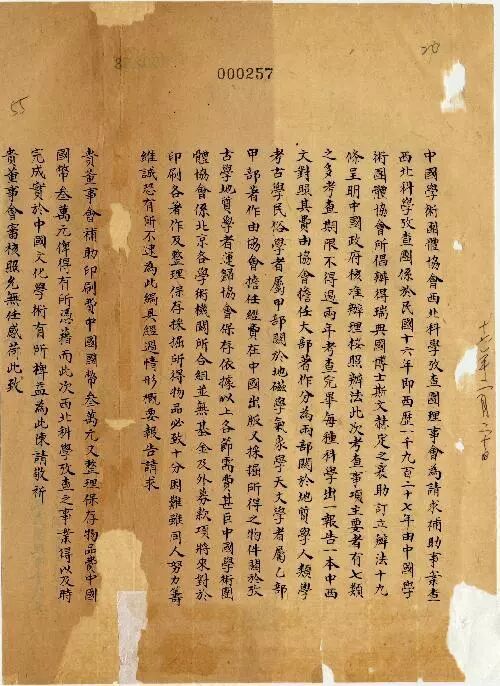 000257
中國學術團體協會西北科學攷查團理事會為請求補助事業查
西北科學攷查團係於民國十六年即西歷一千九百二十七年由中國學
術團體協會所倡辦得瑞典國博士斯文赫定之襄助訂立辦法十九
條呈明中國政府核准辦理按照辦法此次考查事項主要者有七類
之多考查期限不得過兩年考查完畢每種科學出一報告一本中西
文對照其費由協會擔任大部著作分為兩部關於地質學人類學
考古學民俗學者屬甲部關於地磁學氣象學天文學者屬乙部
甲部著作由協會擔任經費在中國出版又採掘所得之物件關於攷
古學地質學者運歸協會保存依據以上各節需費甚巨中國學術團
體協會係北京各學術機關所合組並無基金及外募款項將來對於
印刷各著作及整理保存採掘所得物品必致十分困難雖同人努力籌
維誠恐有所不逮為此編具經過情形概要報告請求
貴董事會補助印刷費中國國幣叁萬元又整理保存物品費中國
國幣叁萬元俾得有所憑藉而此次西北科學攷查之事業得以及時
完成實於中國文化學術有所裨益為此陳請敬祈
貴董事會審核照允無任感荷此致
55